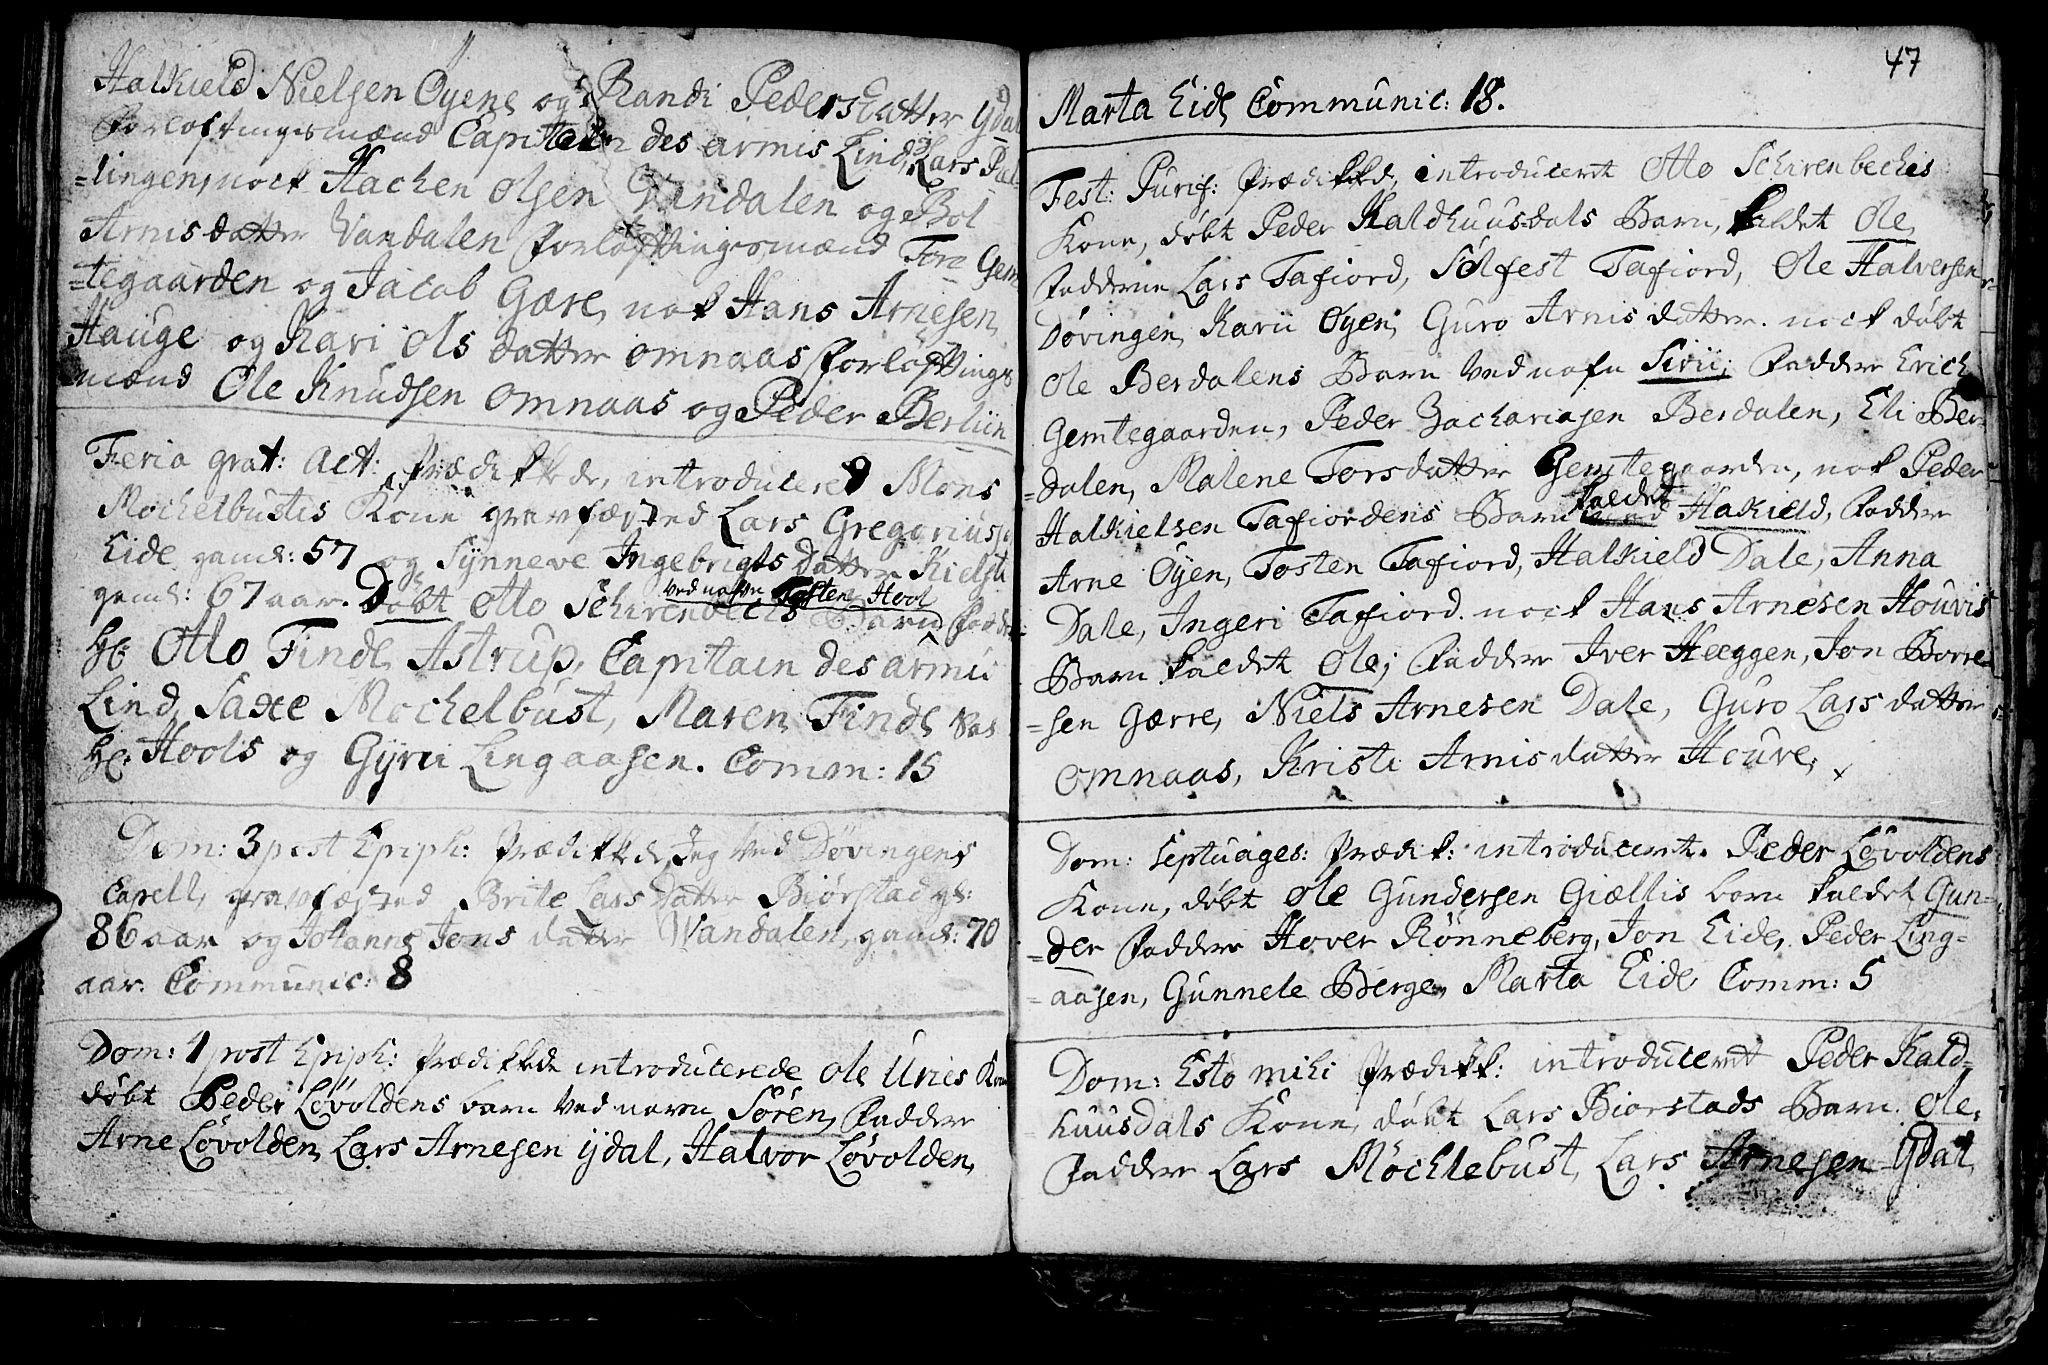 Halkield Nielsen Öyens og Randi Peders Datter Ydal
Forlöftingsmænd Capitain des armis Lind, Lars Fal
=lingen, nock Hachen Olsen Vandalen og Bol
Arnisdatter Vandalen Forlöftingsmænd Tore Gem
=tegaarden og Jacob Gære, nok Hans Arnesen
Hauge og Kari Ols datter Omnaas Forlöftings
mænd Ole Knudsen Omnaas og Peder Berliin
Feria grat: act: Prædikkede, introduceret Mons
Mochelbustes Kone gravfæsted Lars Gregorius
Eide gaml: 57 og Synneve Ingebrigts datter Kielst
gaml: 67 aar. Döbt Otto Schirenbecks Barn
ved nafn Tosten Hool
Hr Otto Finde Astrup, Capitain des armis
Lind, Saxe Mochelbust, Maren Finde
Hr. Hools og Gyrii Lingaasen. Comm: 15
Dom: 3 post Epiph: Prædikkede Jeg ved Dövingens
Capell, gravfæsted Brite Lars Datter Biörstad gl:
86 aar og Johanne Jons datter Wandalen, gaml: 70
aar. Communic: 8
Dom: 4 post Epiph: Prædikkede introducerede Ole Uries Kone
döbt Peder Lövoldens barn ved navn Sören, Faddere
Arne Lövolden, Lars Arnesen ydal, Halvor Lövolden,
47
Marta Eide Communic: 18.
Fest: Purif: Prædikkede, introduceret Otto Schirenbeches
Kone, döbt Peder Kaldhuusdals Barn, kaldet Ole,
Fadderne Lars Tafiord, Sölfest Tafiord, Ole Halversen
Dövingen, Karii Öyen, Guro Arnis datter. nock döbt
Ole Berdalens Barn ved nafn Sirii; Faddere Erich
Gemtegaarden, Peder Zachariasen Berdalen, Eli Ber=
=dalen, Malene Torsdatter Gemtegaarden, nok Peder
Halkielsen Tafiordens Barn kaldet Hakield, Faddere
Arne Öyen, Tosten Tafiord, Halkield Dale, Anna
Dale, Ingeri Tafiord. nock Hans Arnesen Houvis
Barn kaldet Ole; Faddere Iver Heggen, Jon Borre=
=sen Gærre, Niels Arnesen Dale, Guro Lars datter
Omnaas, Kristi Arnisdatter Houve,
Dom: Septuages: Prædik: introduceret. Peder Lövoldens
Kone, döbt Ole Gundersen Giællis barn kaldet Gun=
=der Faddere Hover Rönneberg, Jon Eide, Peder Ling=
=aasen, Gunnele Berge, Marta Eide Comm: 5
Dom: Esto mihi Prædikk: introduceret Peder Kald=
huusdals Kone, döbt Lars Biorstads Barn. Ole,
Faddere Lars Möchlebust, Lars Arnesen Ydal,